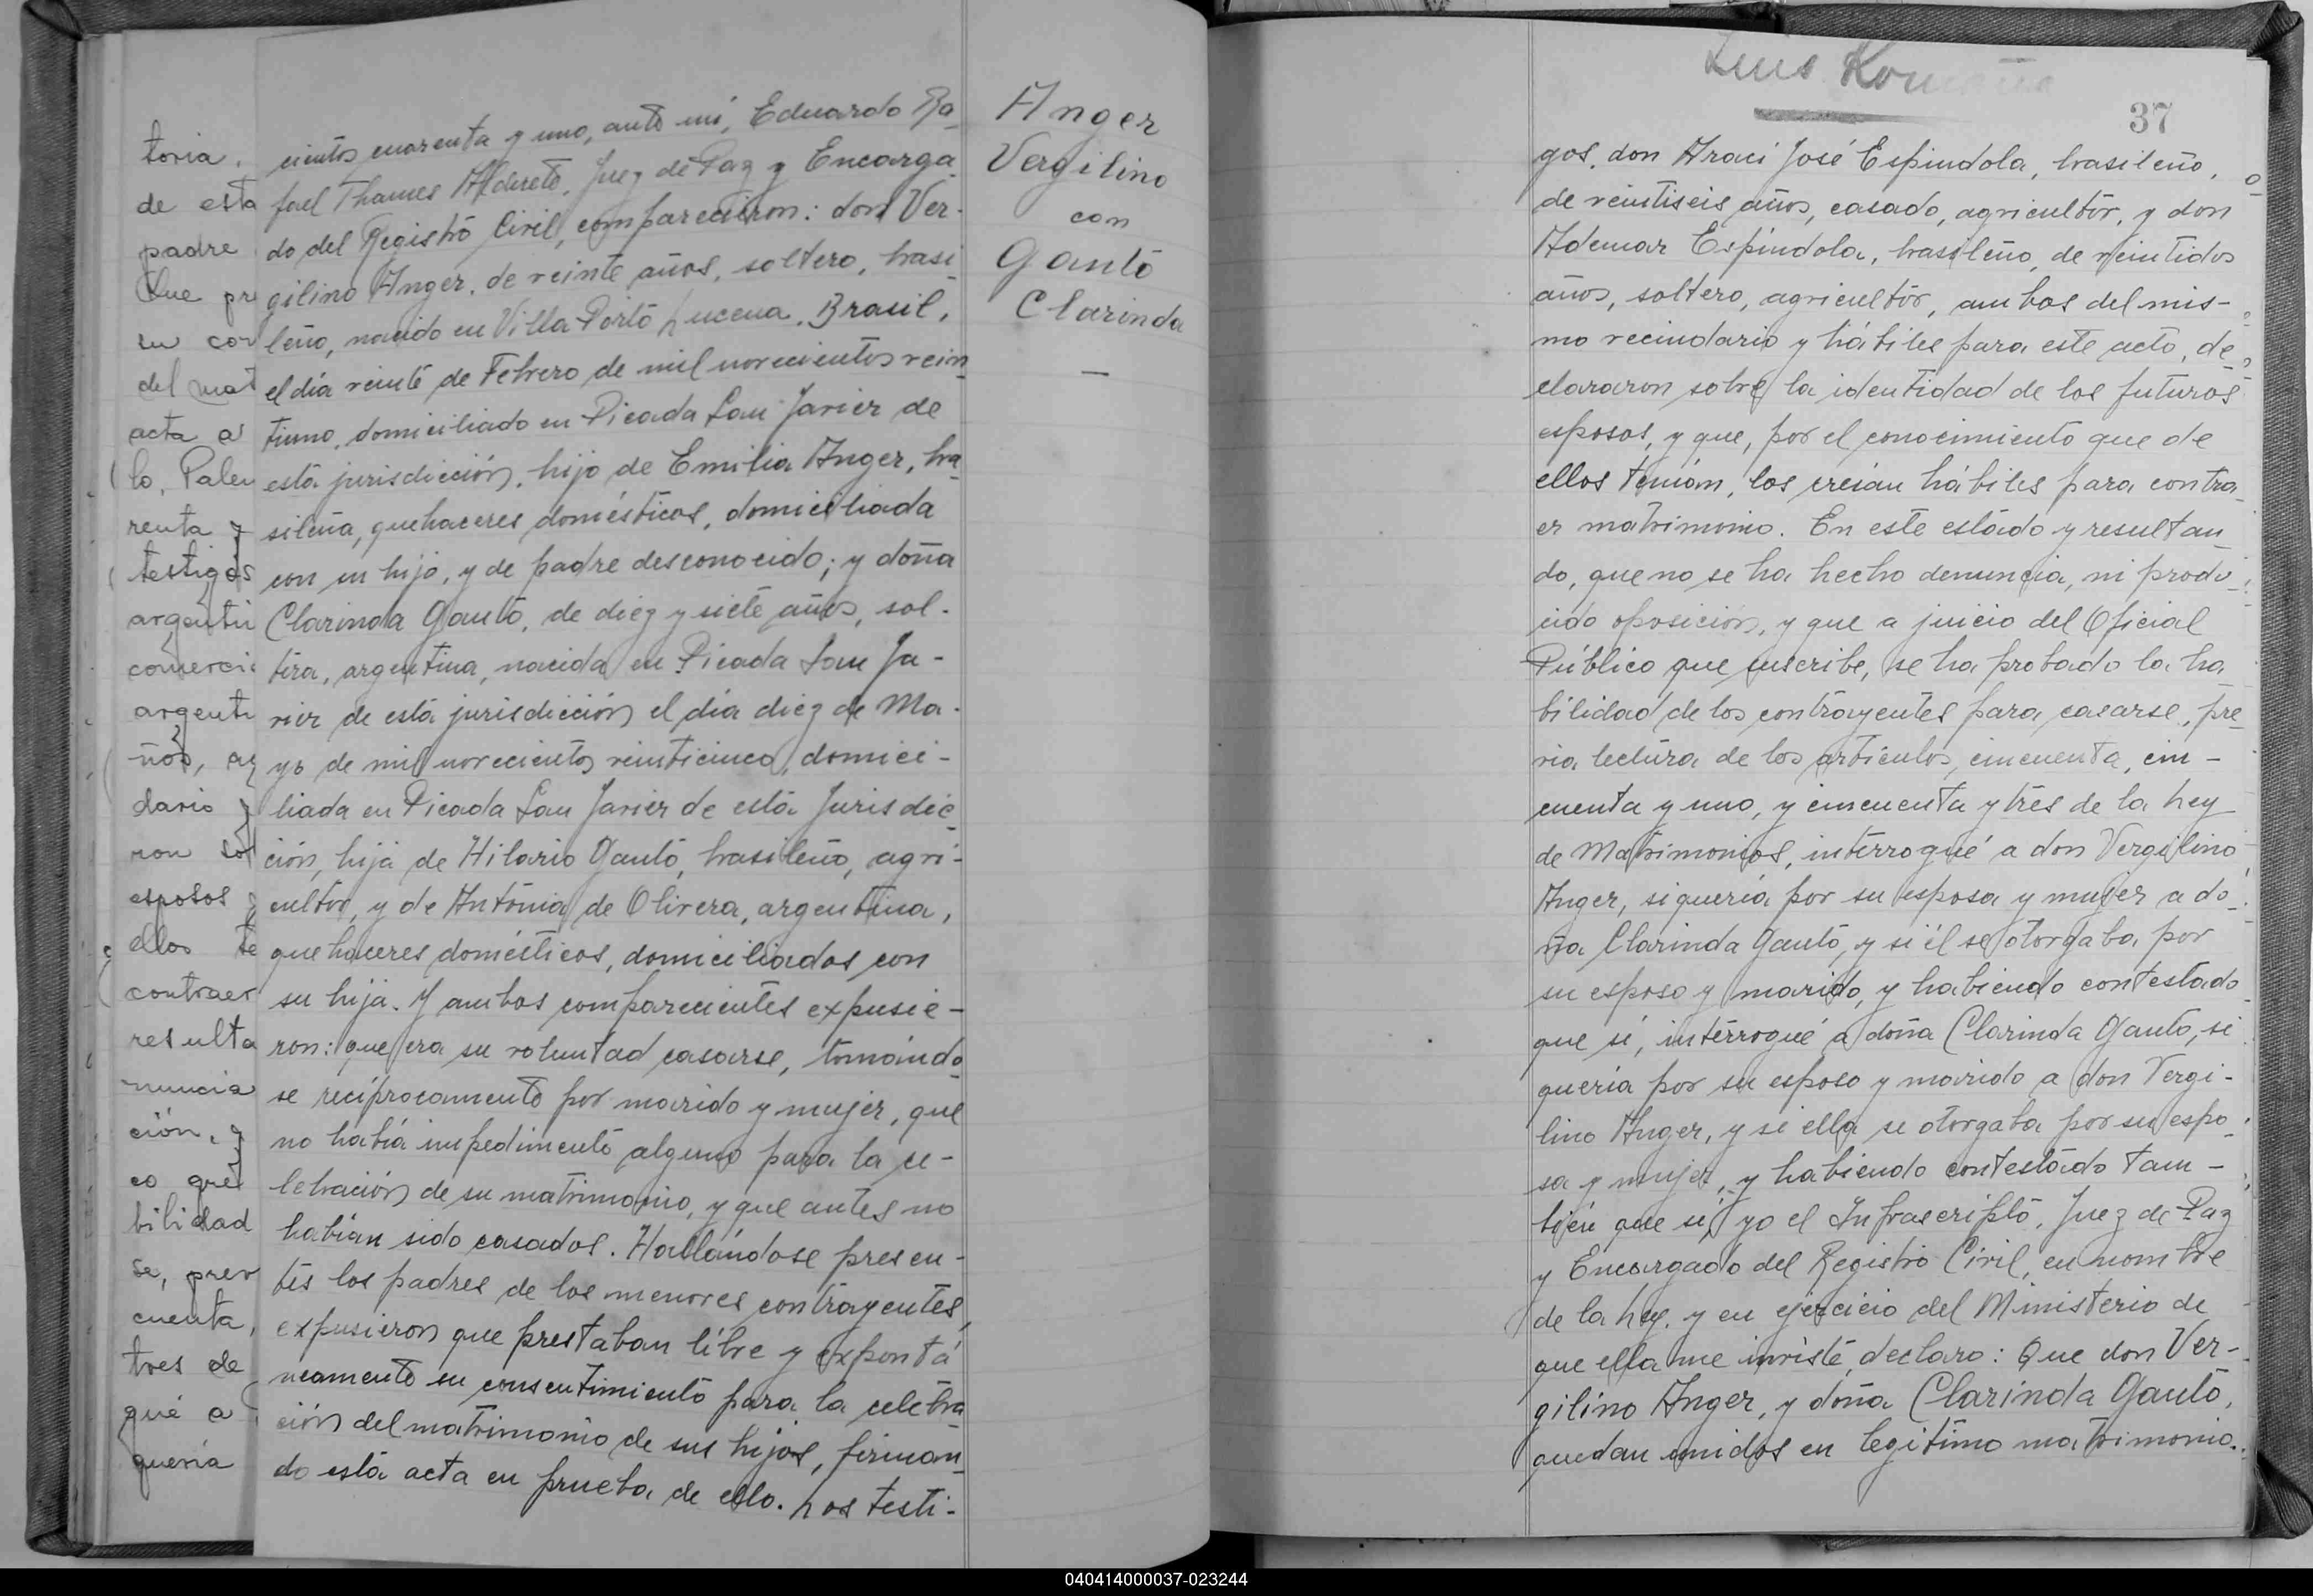 toria.
de esta
padre
Que pr
su con
del mat
acta a
lo, Palen
renta y
testigos
argenti
comerci
argenti
ños, ag
dario y
ron sob
esposos y
ellos te
contraer
resulta
nuncia
ción, y
co que
bilidad
se, prev
cuenta,
tres de
qué a
quería
cientos cuarenta y uno, ante mí, Eduardo Ra-
fael Thames Alderete, Juez de Paz y Encarga-
do del Registro Civil, comparecieron: don Ver-
gilino Anger, de veinte años, soltero, brasi-
leño, nacido en Villa Porto Lucena, Brasil,
el día veinte de Febrero de mil novecientos vein-
tiuno, domiciliado en Picada San Javier de
esta jurisdicción, hijo de Emilia Anger, bra-
sileña, quehaceres domésticos, domiciliada
con su hijo, y de padre desconocido; y doña
Clarinda Gauto, de diez y siete años, sol-
tera, argentina, nacida en Picada San Ja-
vier de esta jurisdicción el día diez de Ma-
yo de mil novecientos veinticinco, domici-
liada en Picada San Javier de esta Jurisdic-
ción, hija de Hilario Gauto, brasileño, agri-
cultor, y de Antonia de Olivera, argentina,
quehaceres domésticos, domiciliados con
su hija. Y ambos comparecientes expusie-
ron: que era su voluntad casarse, tomándo-
se recíprocamente por marido y mujer, que
no había impedimento alguno para la ce-
lebración de su matrimonio, y que antes no
habían sido casados. Hallándose presen-
tes los padres de los menores contrayentes,
expusieron que prestaban libre y expontá
neamente su consentimiento para la celebra-
ción del matrimonio de sus hijos, firman-
do esta acta en prueba de ello. Los testi-
Anger
Vergilino
con
Gauto
Clarinda
—
Luis
37
gos, don Araci José Espindola, brasileño,
de veintiseis años, casado, agricultor, y don
Ademar Espíndola, brasileño, de veintidos
años, soltero, agricultor, ambos del mis-
mo vecindario y hábiles para este acto, de-
clararon sobre la identidad de los futuros
esposos, y que, por el conocimiento que de
ellos tenían, los creían hábiles para contra-
er matrimonio. En este estado y resultan-
do, que no se ha hecho denuncia, ni produ-
cido oposición, y que a juicio del Oficial
Público que suscribe, se ha probado la ha-
bilidad de los contrayentes para casarse, pre-
via lectura de los artículos, cincuenta, cin-
cuenta y uno, y cincuenta y tres de la Ley
de Matrimonios, interrogué a don Vergilino
Anger, si quería por su esposa y mujer a do-
ña Clarinda Gauto, y si él se otorgaba por
su esposo y marido, y habiendo contestado
que si, interrogué a doña Clarinda Gauto, si
quería por su esposo y marido a don Vergi-
lino Anger, y si ella se otorgaba por su espo-
sa y mujer, y habiendo contestado tam-
bién que sí, yo el Infrascripto, Juez de Paz
y Encargado del Registro Civil, en nombre
de la Ley, y en ejercicio del Ministerio de
que ella me inviste, declaro: Que don Ver-
gilino Anger, y doña Clarinda Gauto,
quedan unidos en legítimo matrimonio.
040414000037-023244